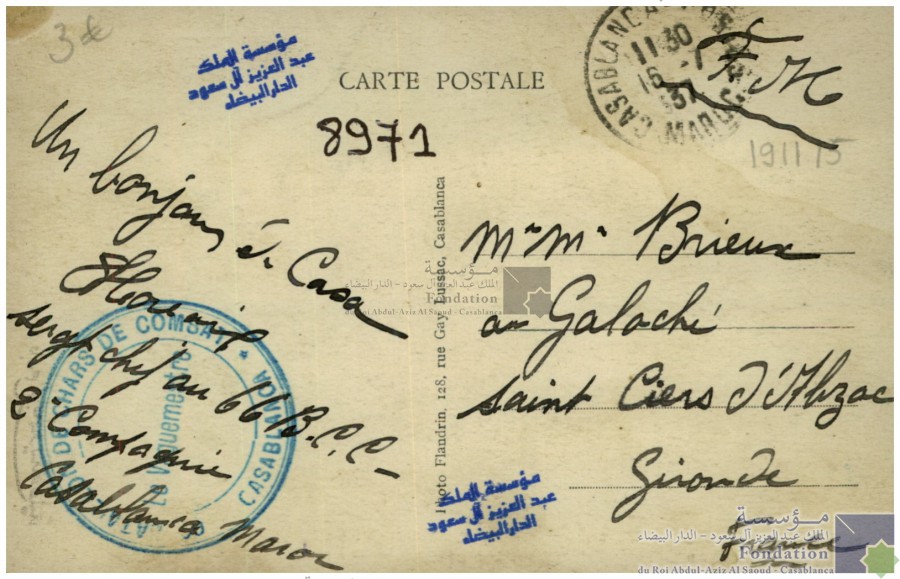 3€
مؤسسة الملك
عبد العزيز آل سعود
الدار البيضاء
CARTE POSTALE
8971
CASABLANCA
11 30
16 -1
37
MAROC
F M
191115
Un bonjour de Casa
serg. chef au 66 B.C.C-
2e Compagnie
Casablanca Maroc
DE CHARS DE COMBAT * CASABLANCA
Le Vaguemestre
Photo Flandrin, 128, rue Gay Lussac, Casablanca
Mr Me Brieux
au Galoché
Saint Ciers d'Abzac
Gironde
France
مؤسسة
الملك عبد العزيز آل سعود - الدار البيضاء
Fondation
du Roi Abdul-Aziz Al Saoud - Casablanca
مؤسسة الملك
عبد العزيز آل سعود
الدار البيضاء
مؤسسة
الملك عبد العزيز آل سعود - الدار البيضاء
Fondation
du Roi Abdul-Aziz Al Saoud - Casablanca